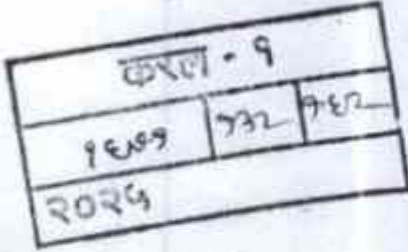 करल - १
१६७१ १३२ १६२
२०२५